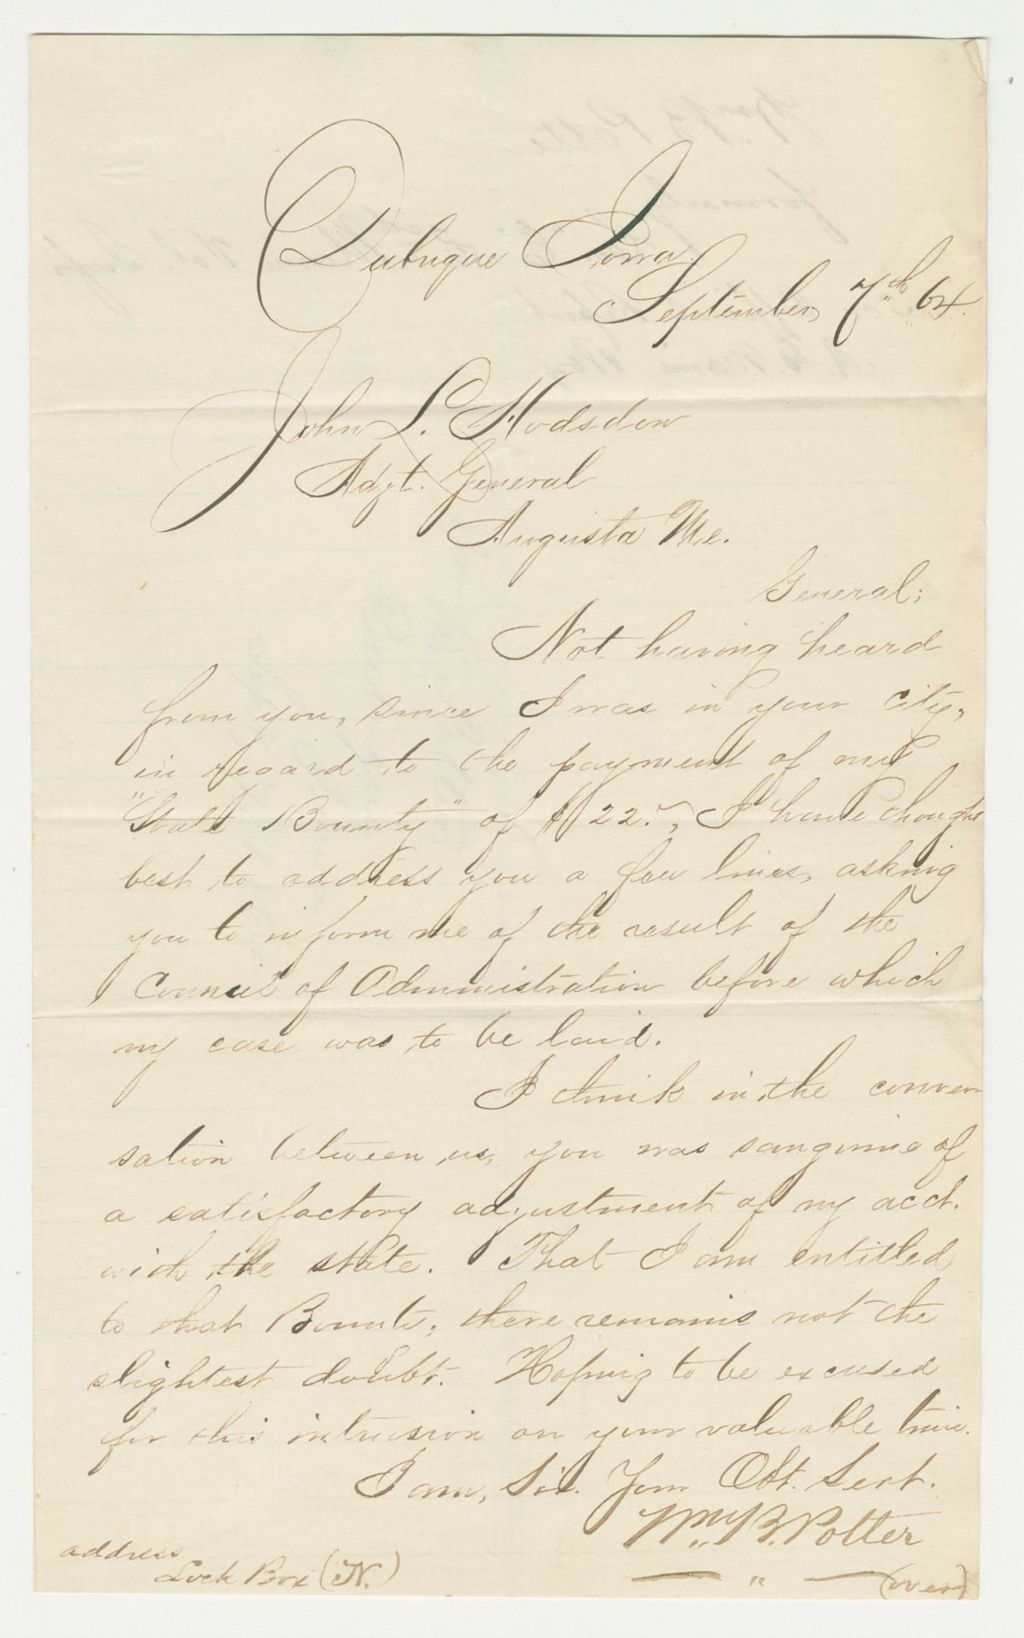 Dubuque Iowa.
September, 7th 64.
John L. Hodsdon
Adjt. General
Augusta Me.
General;
Not having heard
from you, since I was in your city,
in regard to the payment of my
"State Bounty" of $22.", I have thought
best to address you a few lines, asking
you to inform me of the result of the
Council of Administration before which
my case was to be laid.
I think in the conver
sation between us, you was sanguine of
a satisfactory adjustment of my acct.
with the state. That I am entitled
to that Bounty, there remains not the
slightest doubt. Hoping to be excused
for this intrusion on your valuable time.
I am, Sir. Your Obt. Sevt.
Wm. B. Potter
address
Lock Box (N.)
— " — (over)